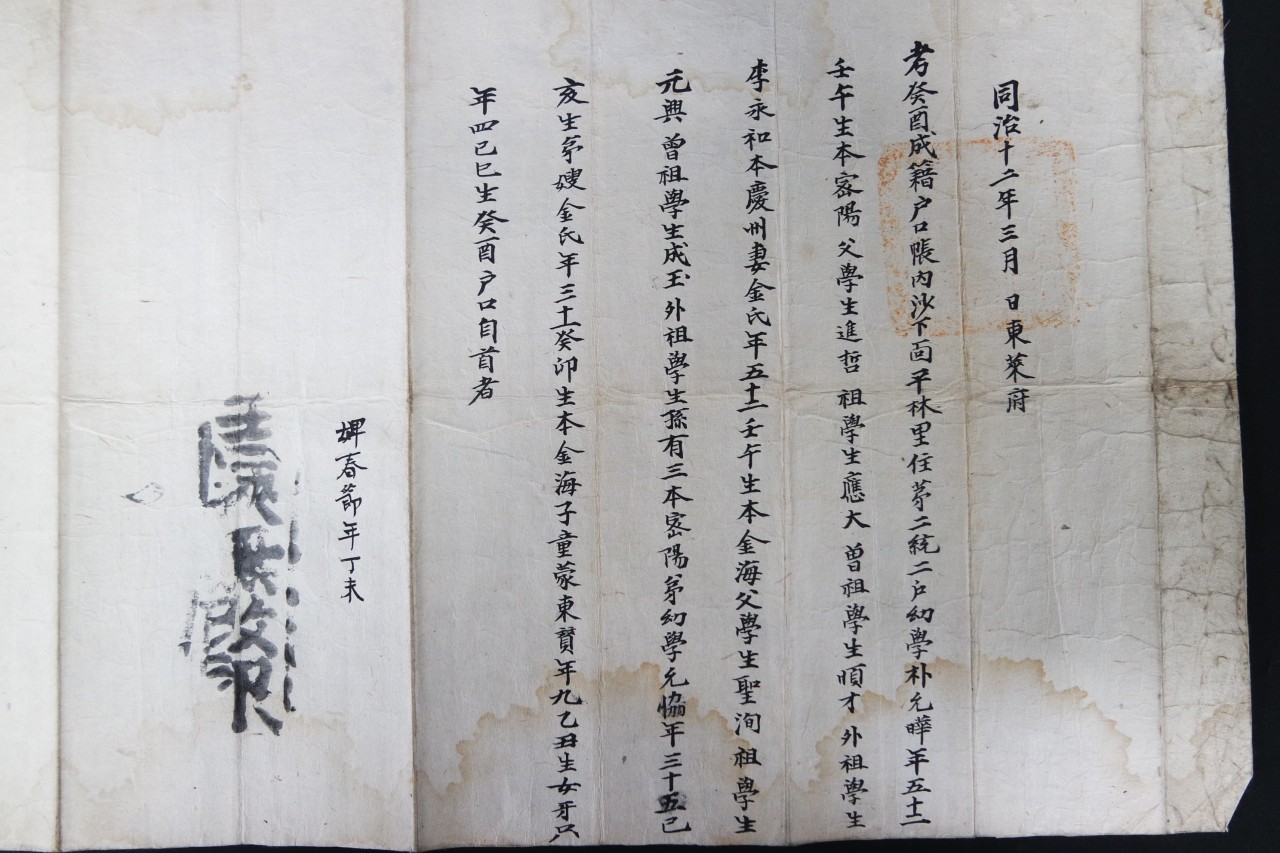 同治十二年三月 日東萊府
考癸酉成籍户口帳內沙下面平林里住苐二統二户幼學朴允曄年五十二
壬午生本密陽 父學生進哲 祖學生應大 曾祖學生順才 外祖學生
李永和本慶州妻金氏年五十二壬午生本金海父學生聖洵 祖學生
元興 曾祖學生成玉 外祖學生孫有三本密陽苐幼學允愶年三十五己
亥生苐嫂金氏年三十一癸卯生本金海子童蒙東賛年九乙丑生女牙只
年四己巳生癸酉户口自首者
婢春節年丁未